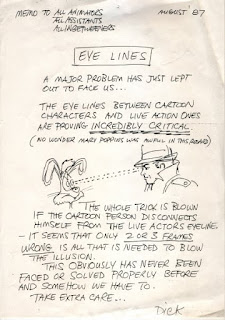 MEMO TO ALL ANIMATORS AUGUST 87
ALL ASSISTANTS
ALL INBETWEENERS
EYE LINES
A MAJOR PROBLEM HAS JUST LEPT
OUT TO FACE US...
THE EYE LINES BETWEEN CARTOON
CHARACTERS AND LIVE ACTION ONES
ARE PROVING INCREDIBLY CRITICAL.
(NO WONDER MARY POPPINS WAS AWFUL IN THIS ROAD)
THE WHOLE TRICK IS BLOWN
IF THE CARTOON PERSON DISCONNECTS
HIMSELF FROM THE LIVE ACTORS EYELINE.
- IT SEEMS THAT ONLY 2 OR 3 FRAMES
WRONG IS ALL THAT IS NEEDED TO BLOW
THE ILLUSION.
THIS OBVIOUSLY HAS NEVER BEEN
FACED OR SOLVED PROPERLY BEFORE
AND SOMEHOW WE HAVE TO.
TAKE EXTRA CARE...
DICK